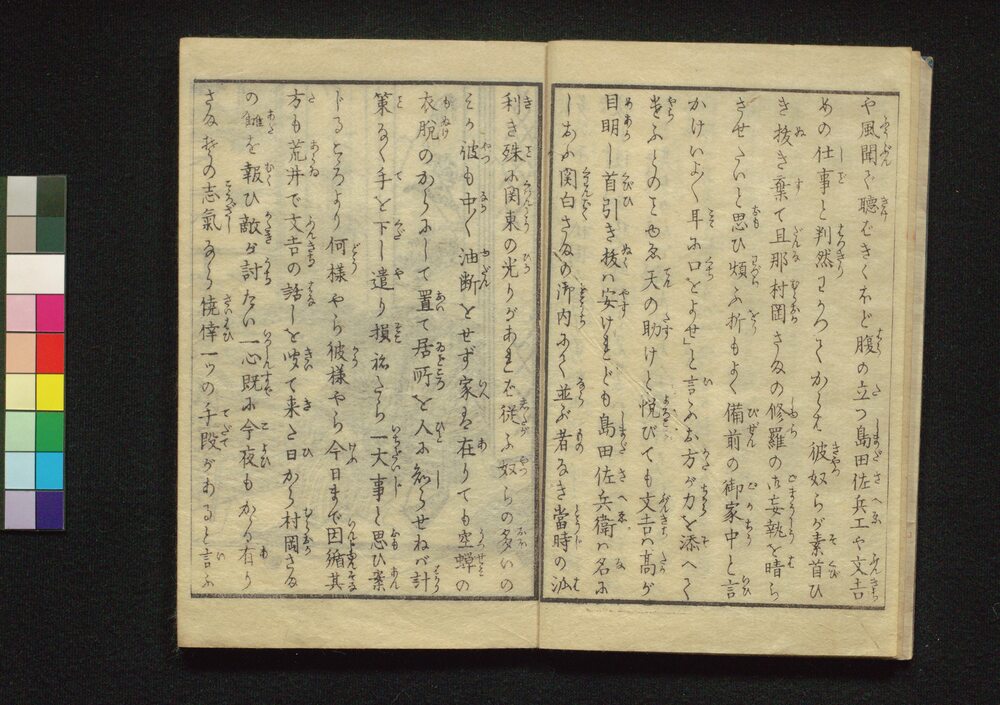 や風聞を聴ばきくほど腹の立つ島田佐兵工や文吉
めの仕事と判然わかつてからは彼奴らが素首ひ
き抜き棄て且那村岡さまの修羅の御妄執を晴ら
させたいと思ひ頻ふ折もよく備前の御家中と言
かけいよく耳に口をよせ」と言ふお方が力を添へて
遣ふとのことゆゑ天の助けと悦びても文吉は高が
目明し首引き抜は安けれども島田佐兵衛は名に
しおふ関白さまの御内にて並ぶ者なき當時の泒
利き殊に関東の光りがあれば従ふ奴らの多いの
そか彼も中々油断をせず家に在りても空蟬の
衣脱のからにして置て居所を人に知らせねば計
策なく手を下し遣り損ねたら一大事と思ひ案
じるところより何様やら彼様やら今日まで因循其
方も荒井で文吉の話しを聞て来た日から村岡さま
の讎を報ひ敵が討たい一心既に今夜もかう有り
さまその志氣なら僥倖一ツの手段があると言ふ